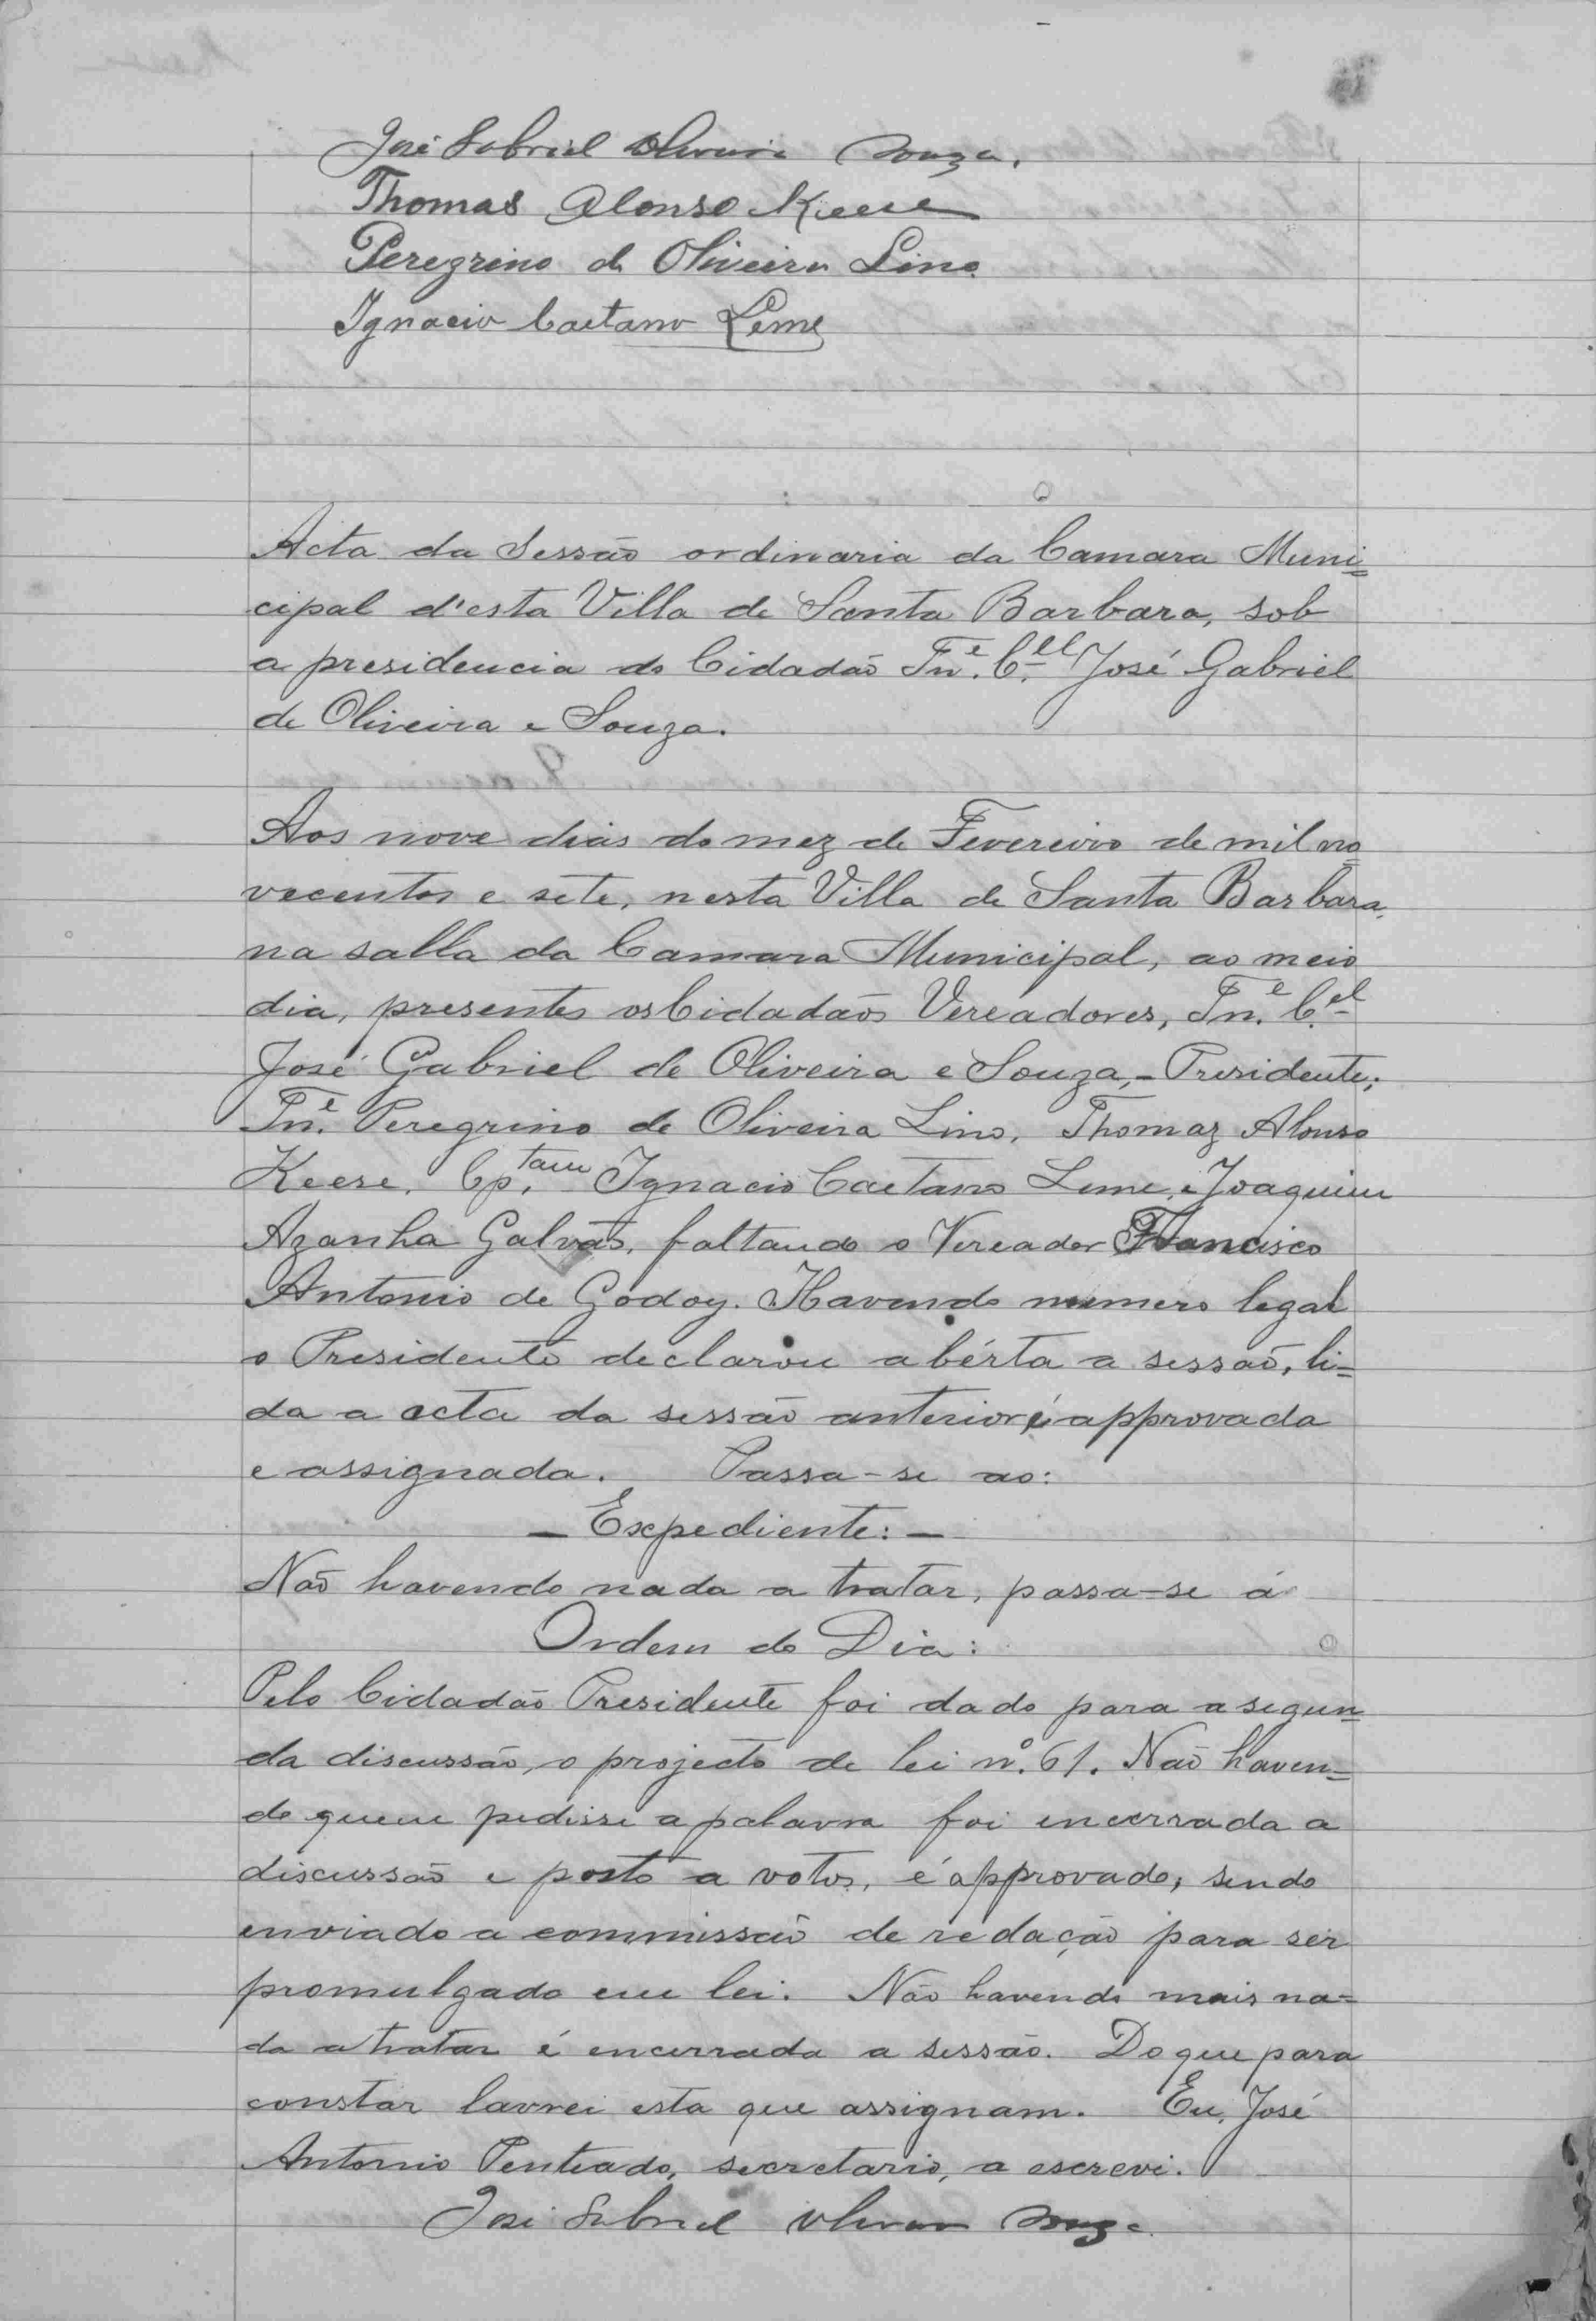 José Gabriel Oliveira Souza.
Thomas Alonso Keese
Peregrino de Oliveira Lino
Ignacio Caetano Leme
Acta da Sessão ordinaria da Camara Muni=
cipal d'esta Villa de Santa Barbara, sob
a presidencia do Cidadão Tn.e C.el José Gabriel
de Oliveira e Souza.
Aos nove dias do mez de Fevereiro de mil no
vecentos e sete, nesta Villa de Santa Barbara,
na salla da Camara Municipal, ao meio
dia, presentes os Cidadãos Vereadores, Tn.e C.el
José Gabriel de Oliveira e Souza,- Presidente;
Tn.e Peregrino de Oliveira Lino, Thomaz Alonso
Keese, Cp.tam Ignacio Caetano Leme, e Joaquim
Azanha Galvão, faltando o Vereador Francisco
Antonio de Godoy. Havendo numero legal
o Presidente declarou abérta a sessão, li=
da a acta da sessão anterior é approvada
e assignada. Passa-se ao:
- Expediente: -
Não havendo nada a tratar, passa-se á
Ordem do Dia:
Pelo Cidadão Presidente foi dado para a segun=
da discussão, o projecto de lei nº. 61. Não haven=
do quem pedisse a palavra foi encerrada a
discussão e posto a votos, é approvado, sendo
enviado a commissão de redação para ser
promulgado em lei. Não havendo mais na=
da a tratar é encerrada a sessão. Do que para
constar lavrei esta que assignam. Eu, José
Antonio Penteado, secretario, a escrevi.
José Gabriel Oliveira Souza